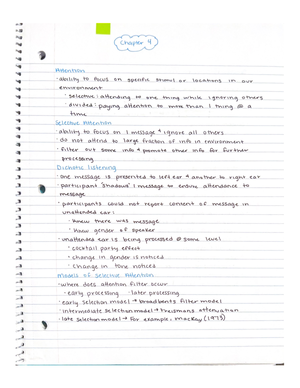 Chapter 4
Attention
·ability to focus on specific stimuli or locations in our
environment
·selective: attending to one thing while ignoring others
·divided: paying attention to more than 1 thing @ a
time
Selective Attention
·ability to focus on 1 message & ignore all others
·do not attend to large fraction of info in environment
·filter out some info & promote other info for further
processing
Dichotic listening
·one message is presented to left ear & another to right ear
·participant "shadows" 1 message to ensure attendance to
message
·participants could not report content of message in
unattended ear:
·knew there was message
·know gender of speaker
·unattended ear is being processed @ some level
·cocktail party effect
·change in gender is noticed
·change in tone noticed
Models of Selective Attention
·where does attention filter occur
·early processing ·later processing
·early selection model → broadbents filter model
·intermediate selection model → treismans attenuation
·late selection model → for example, mackay (1973)